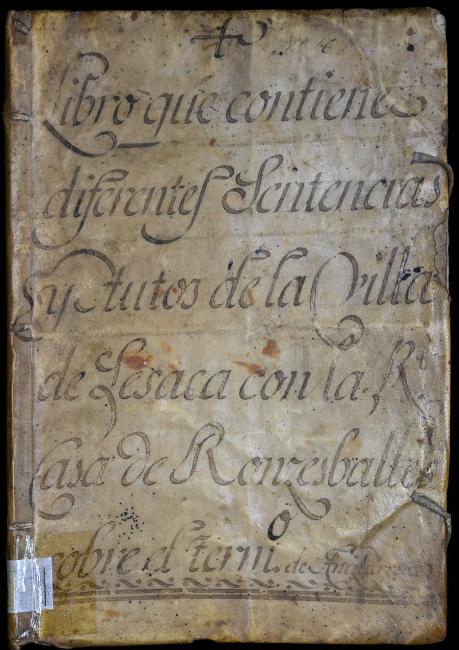 Libro que contiene
diferentes Sentencias
y Autos de la Villa
de Lesaca con la Rl
Casa de Ronzesballes
sobre el termo. de